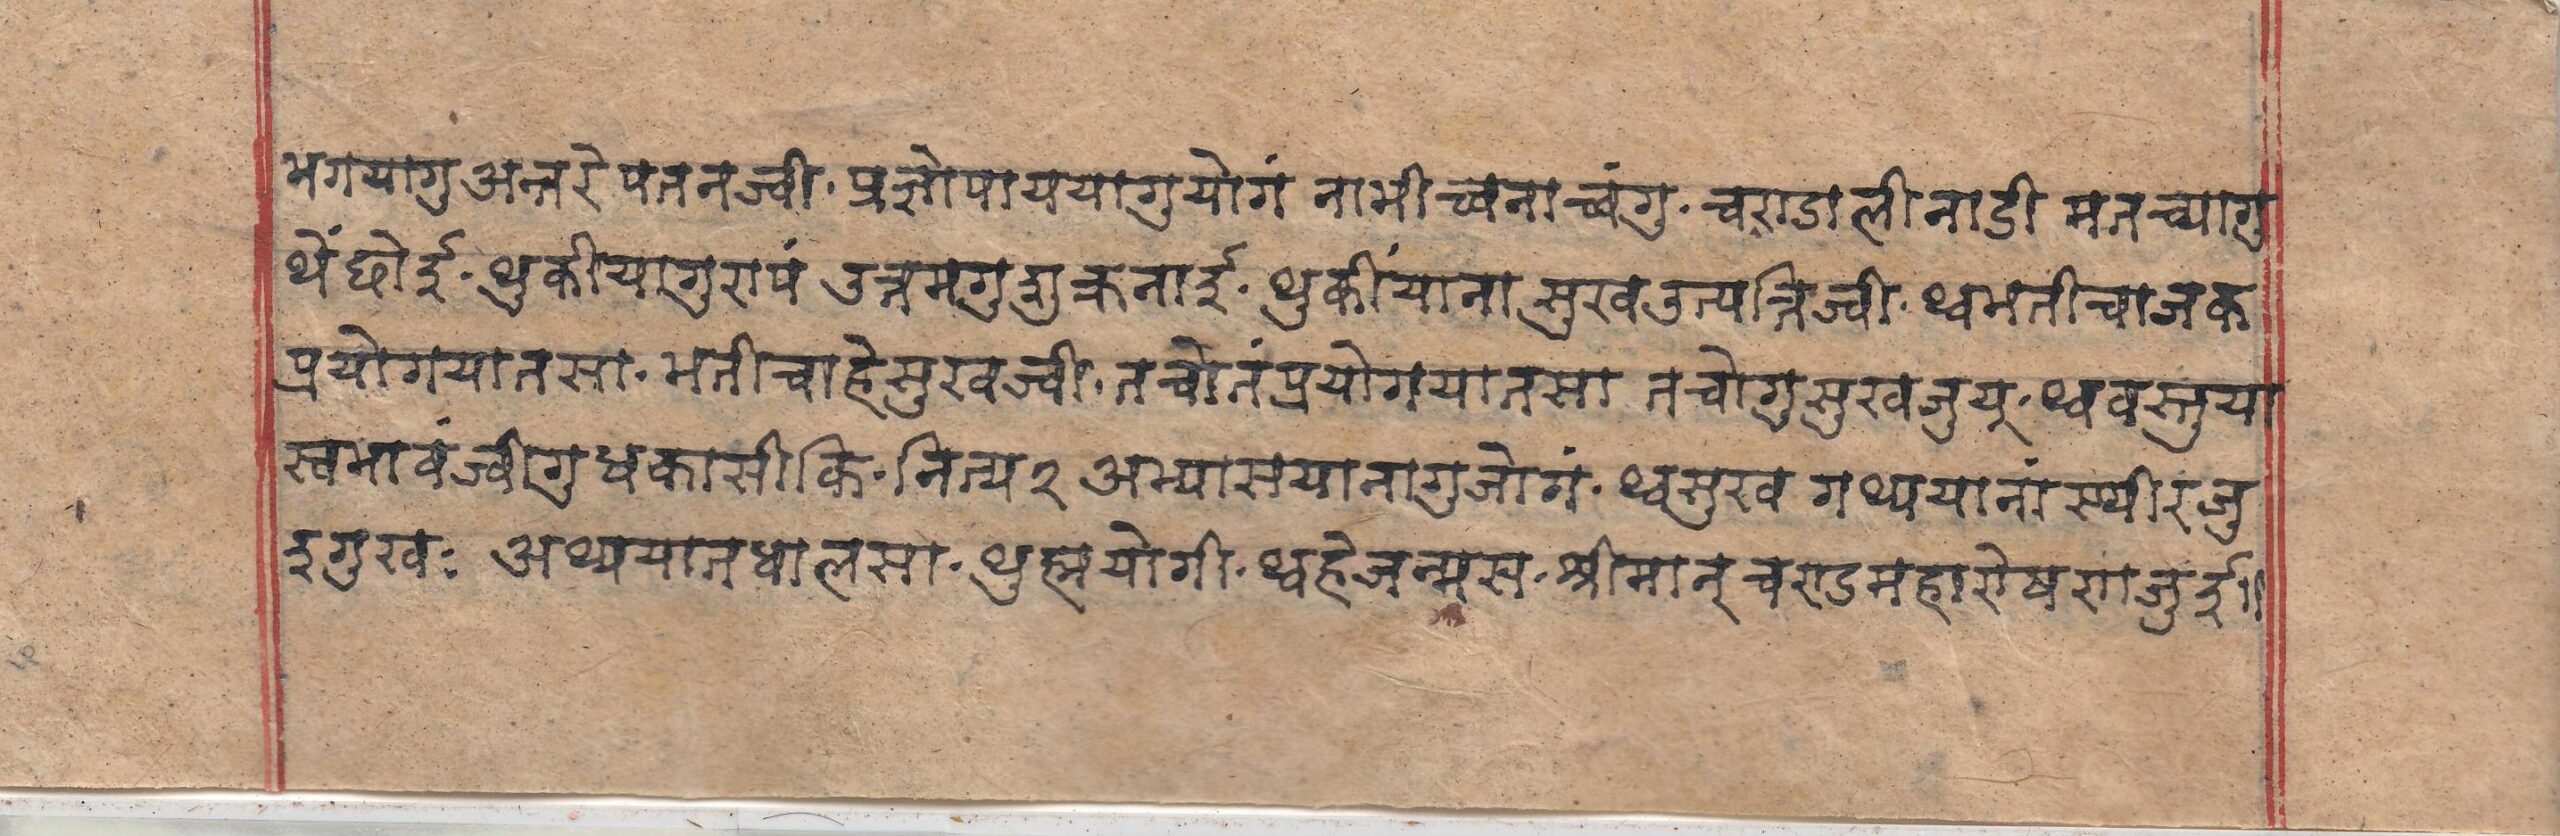 भगयागु अन्तरे पतनज्वी· प्रज्ञोपाययागु योगं नाभी च्वनाच्वंगु· चण्डाली नाडी मत च्यागु
थें छोई· थुकीयागु रापं उत्तमगु शुक्र नाई· थुकीयाना सुख उत्पत्तिज्वी· थ्व भतीचा जक
प्रयोगयातसा· भतीचा हे सुखज्वी· तचोतं प्रयोगयातसा तचोगु सुख जुयू· थ्व वस्तुया
स्वभावं ज्वीगु धका सीकि· नित्य २ अभ्यासयानागु जोगं· थ्व सुख गथ्ययानां स्थीर जु
इगु खः अथ्ययात धालसा· थुह्म योगी· थ्वहे जन्मस· श्रीमान् चण्डमहारोषण जुई॥